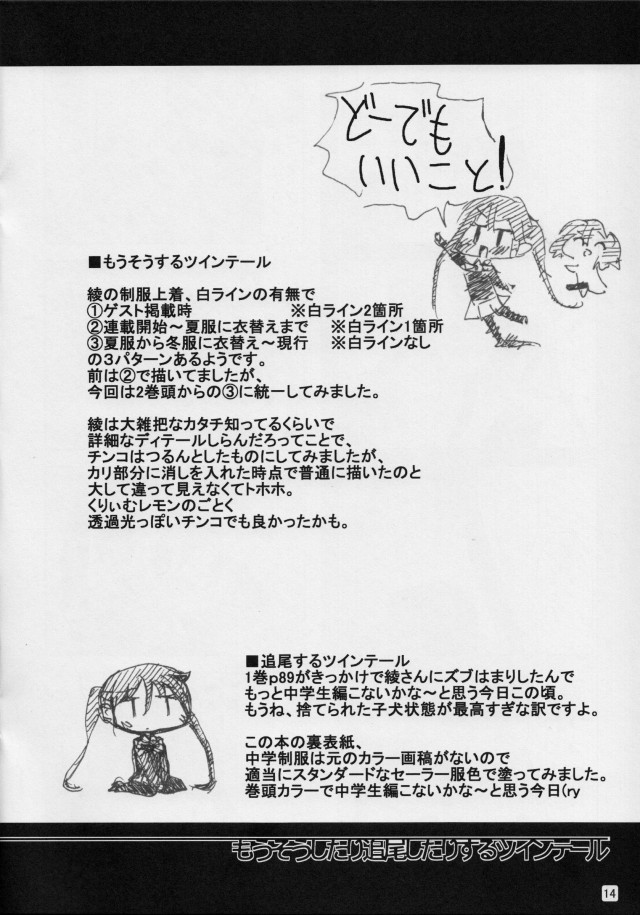 どーでも
いいこと!
■もうそうするツインテール
綾の制服上着、白ラインの有無で
①ゲスト掲載時 ※白ライン2箇所
②連載開始～夏服に衣替えまで ※白ライン1箇所
③夏服から冬服に衣替え～現行 ※白ラインなし
の3パターンあるようです。
前は②で描いてましたが、
今回は2巻頭からの③に統一してみました。
綾は大雑把なカタチ知ってるくらいで
詳細なディテールしらんだろってことで、
チンコはつるんとしたものにしてみましたが、
カリ部分に消しを入れた時点で普通に描いたのと
大して違って見えなくてトホホ。
くりぃむレモンのごとく
透過光っぽいチンコでも良かったかも。
■追尾するツインテール
1巻p89がきっかけで綾さんにズブはまりしたんで
もっと中学生編こないかな～と思う今日この頃。
もうね、捨てられた子犬状態が最高すぎな訳ですよ。
この本の裏表紙、
中学制服は元のカラー画稿がないので
適当にスタンダードなセーラー服色で塗ってみました、
巻頭カラーで中学生編こないかな～と思う今日(ry
もうそうしたり追尾したりするツインテール
14